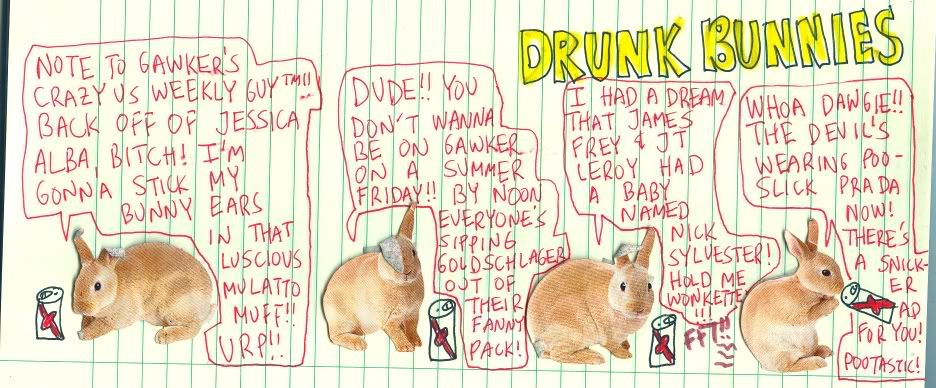 DRUNK BUNNIES
NOTE TO GAWKER'S
CRAZY US WEEKLY GUY™!!
BACK OFF OF JESSICA
ALBA, BITCH! I'M
GONNA STICK MY
BUNNY EARS
IN THAT
LUSCIOUS
MULATTO
MUFF!!
URP!!
DUDE!! YOU
DON'T WANNA
BE ON GAWKER
ON A SUMMER
FRIDAY!! BY NOON
EVERYONE'S
SIPPING
GOLDSCHLAGER
OUT OF
THEIR
FANNY
PACK!
I HAD A DREAM
THAT JAMES
FREY & JT
LEROY HAD
A BABY
NAMED
NICK
SYLVESTER!
HOLD ME
WONKETTE
!!!
FFT!!
WHOA DAWGIE!!
THE DEVIL'S
WEARING POO-
SLICK PRADA
NOW!
THERE'S
A SNICK-
ER
AD
FOR YOU!
POOTASTIC!